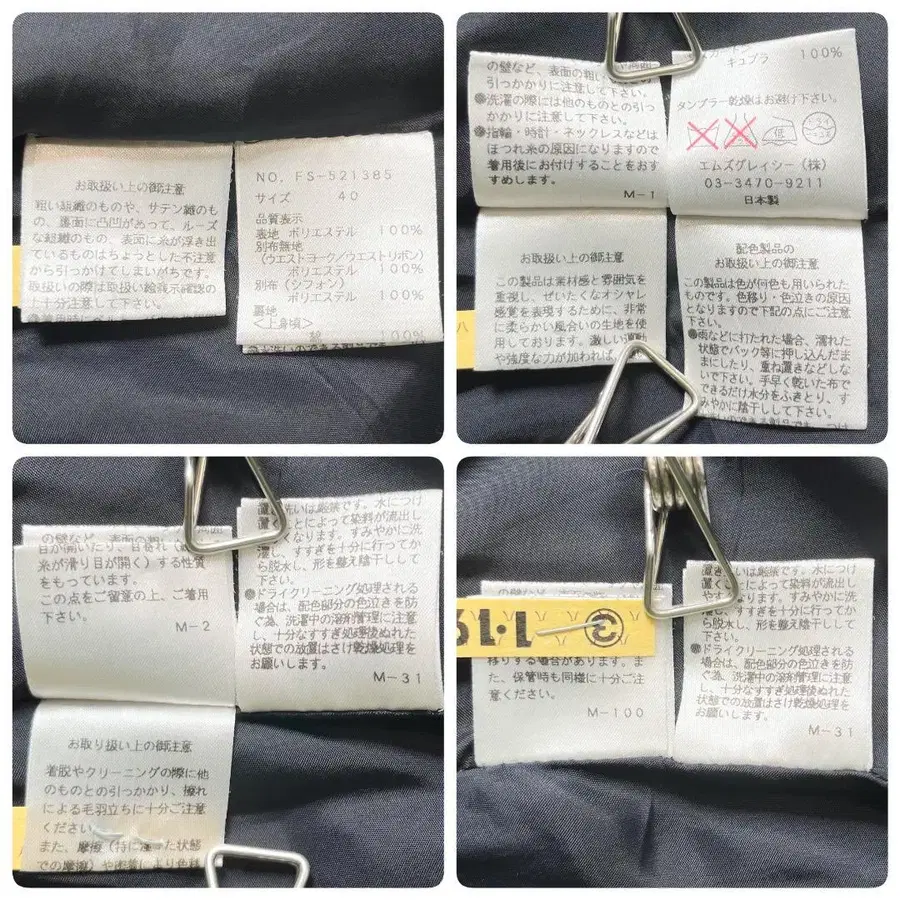 お取扱い上の御注意
粗い組織のものや、サテン織のも
の、裏面に凸凹があって、ルーズ
な組織のもの、表面に糸が浮き出
ているものはちょっとした不注意
から引っかけてしまいがちです。
取扱いの際は取扱い絵表示確認の
上十分注意して下さい。
NO. FS-521385
サイズ 40
品質表示
表地 ポリエステル 100%
別布無地
(ウエストヨーク/ウエストリボン)
ポリエステル 100%
別布(シフォン)
ポリエステル 100%
裏地
<上身頃>
綿 100%
の壁など、表面の粗い
引っかかりに注意して下さい。
●洗濯の際には他のものとの引っ
かかりに注意して下さい。
●指輪・時計・ネックレスなどは
ほつれ糸の原因になりますので
着用後にお付けすることをおす
すめします。
M-1
キュプラ 100%
タンブラー乾燥はお避け下さい。
低
エムズグレイシー(株)
03-3470-9211
日本製
お取扱い上の御注意
この製品は素材感と雰囲気を
重視し、ぜいたくなオシャレ
感覚を表現するために、非常
に柔らかい風合いの生地を使
用しております。激しい運動
や強度な力が加われば、
配色製品の
お取扱い上の御注意
この製品は色が何色も用いられた
ものです。色移り・色泣きの原因
となりますので下記の点にご注意
下さい。
●雨などに打たれた場合、濡れた
状態でバック等に押し込んだま
まにしたり、重ね置きなどしな
いで下さい。手早く乾いた布で
できるだけ水分をふきとり、す
みやかに陰干しして下さい。
の壁など、表面の
目が開いたり、目寄れ(
糸が滑り目が開く)する性質
をもっています。
この点をご留意の上、ご着用
下さい。
M-2
置き洗いは厳禁です。水につけ
置くことによって染料が流出し
なくなります。すみやかに洗
濯し、すすぎを十分に行ってか
ら脱水し、形を整え陰干しして
下さい。
●ドライクリーニング処理される
場合は、配色部分の色泣きを防
ぐ為、洗濯中の溶剤管理に注意
し、十分なすすぎ処理後ぬれた
状態での放置はさけ乾燥処理を
お願いします。
M-31
お取り扱い上の御注意
着脱やクリーニングの際に他
のものとの引っかかり、擦れ
による毛羽立ちに十分ご注意
ください。
また、摩擦(特に湿った状態
での摩擦)や
③
1・19
移りする場合があります。ま
た、保管時も同様に十分ご注
意ください。
M-100
置き洗いは厳禁です。水につけ
置くことによって染料が流出し
やすく
濯し、すすぎを十分に行ってか
ら脱水し、形を整え陰干しして
下さい。
●ドライクリーニング処理される
場合は、配色部分の色泣きを防
ぐ為、洗濯中の溶剤管理に注意
し、十分なすすぎ処理後ぬれた
状態での放置はさけ乾燥処理を
お願いします。
M-31